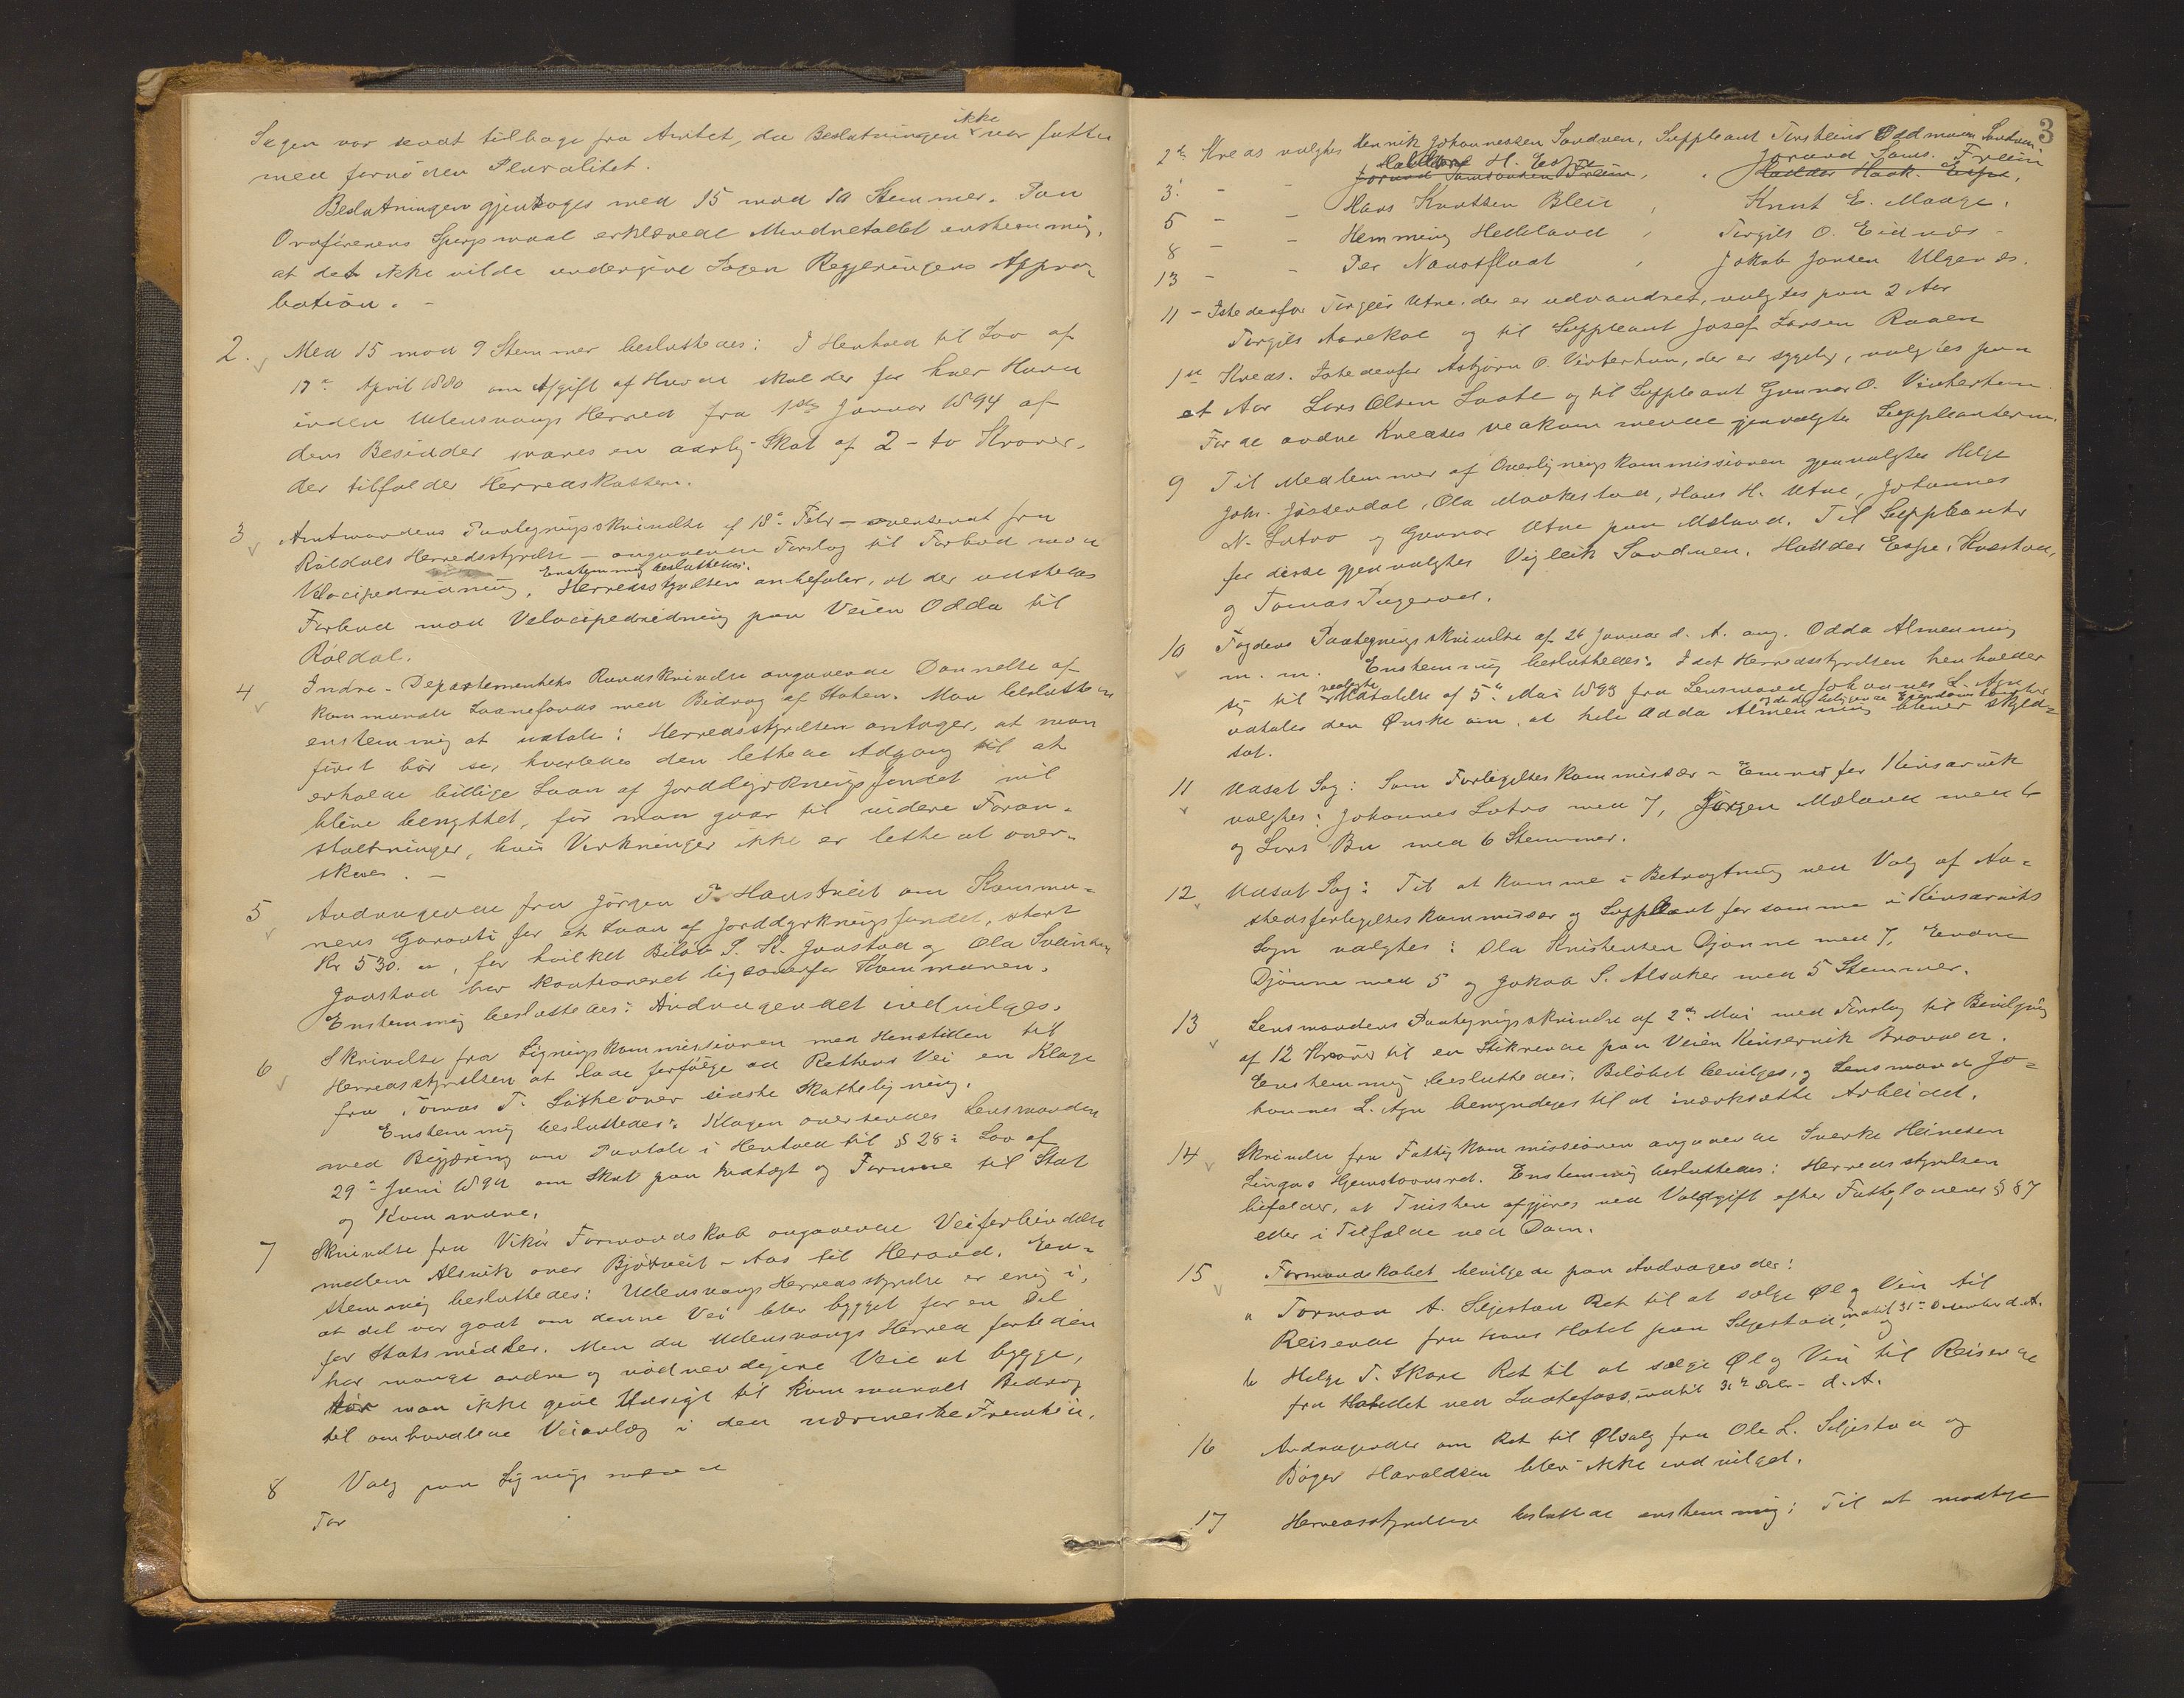 Sagen var sendt tilbage fra Amtet, da Beslutningen ikke var fattet
med fornøden Pluralitet.
Beslutningen gjentoges med 15 mod 10 Stemmer. Paa
Ordførerens Spørgsmaal erklærede Mindretallet enstemmig,
at det ikke vilde undergive Sagen Regjeringens Appro-
bation. -
2. Med 15 mod 9 Stemmer besluttedes: I Henhold til Lov af
17de April 1880 om Afgift af Hunde skal der for hver Hund
inden Ullensvangs Herred fra 1ste Januar 1894 af
dens Besidder svares en aarlig Skat af 2 - to Kroner,
der tilfalder Herredskassen.
3 Amtmandens Paategningsskrivelse af 18de Febr - oversendt fra
Røldals Herredsstyrelse - angaaende Forslag til Forbud mod
Velocipedridning. Enstemmig besluttedes: Herredsstyrelsen anbefaler, at der udstedes
Forbud mod Velocipedridning paa Veien Odda til
Røldal.
4 Indre-Departementets Rundskrivelse angaaende Dannelse af
kommunale Laanefonds med Bidrag af Staten. Man besluttede
enstemmig at udtale: Herredsstyrelsen antager, at man
først bør se, hvorledes den lettede Adgang til at
erholde billige Laan af Jorddyrkningsfondet vil
blive benyttet, før man gaar til videre Foran-
staltninger, hvis Virkninger ikke er lette at over-
skue. -
5 Andragende fra Jørgen T. Haustveit om Kommu-
nens Garanti for et Laan af Jorddyrkningsfondet, stort
Kr 530. , for hvilket Beløb S. K. Jaastad og Ola
Jaastad har kautioneret ligeoverfor Kommunen.
Enstemmig besluttedes: Andragendet indvilges.
6 Skrivelse fra Ligningskommissionen med Henstillen til
Herredsstyrelsen at lade forfølge ad Rettens Vei en Klage
fra Tomas T. Lothe over sidste Skatteligning.
Enstemmig besluttedes: Klagen oversendes Lensmanden
med Begjæring om Paatale i Henhold til § 28 i Lov af
29de Juni 1892 om Skat paa Indtægt og Formue til Stat
og Kommune.
7 Skrivelse fra Vikør Formandskab angaaende Veiforbindelse
mellem Alsvik over Bjotveit - Aas til Herand. En-
stemmig besluttedes: Ullensvangs Herredsstyrelse er enig i,
at det var godt om denne Vei blev bygget for en Del
for Statsmidler. Men da Ullensvangs Herred for tiden
har mange andre og nødvendigere Veie at bygge,
tør man ikke give Udsigt til kommunalt Bidrag
til omhandlede Veianlæg i den nærmeste Fremtid.
8 Valg paa Ligningsmænd
For
3
2den Kreds valgtes Henrik Johannessen Sandven, Suppleant Torstein Oddmun Sandven
3. - - Halldor H. Espe Jorand Sams. Freim
Jorand Samsonsen Freim, Halldor Haak. Espe,
5 - - Hans Knutsen Bleie, Knut E. Maage,
8 - - Hemming Helleland, Torgils O. Eidnes -
13 - - Per Naustflaat, Jakob Jonsen Ulgenes.
11 - Istedenfor Torgils Utne, der er udvandret, valgtes paa 2 Aar
Torgils Aarekol og til Suppleant Josef Larsen Raaen
1ste Kreds. Istedenfor Asbjørn O. Vinterthun, der er sygelig, valgtes paa
et Aar Lars Olsen Laate og til Suppleant Gunnar O. Vinterthun.
For de andre Kredses vedkommende gjenvalgtes Suppleanterne.
9 Til Medlemmer af Overligningskommissionen gjenvalgtes Helge
Johs. Jøssendal, Ola Maakestad, Hans H. Utne, Johannes
N. Lutro og Gunnar Utne paa Mæland. Til Suppleanter
for disse gjenvalgtes Vigleik Sandven, Halldor Espe,
og Tomas Tngerod.
10 Fogdens Paategningsskrivelse af 26 Januar d. A. ang. Odda Almenning
m. m. Enstemmig besluttedes: Idet Herredsstyrelsen henholder
sig til vedlagte Udtalelse af 5te Mai 1893 fra Lensmand Johannes L. Aga
udtales den Ønske om, at hele Odda Almenning og de dertil liggende Eiendomme bliver skyld-
sat.
11 Udsat Sag: Som Forligelseskommissær-Emner for Kinsarvik
valgtes: Johannes Lutro med 7, Jørgen Mæland med 6
og Lars Bu med 6 Stemmer.
12 Udsat Sag: Til at komme i Betragtning ved Valg af Aa-
stedsforligelseskommissær og Suppleant for samme i Kinsarviks
Sogn valgtes: Ola Kristensen Djønne med 7,
Djønne med 5 og Jakob S. Alsaker med 5 Stemmer.
13 Lensmandens Paategningsskrivelse af 2den Mai med Forslag til Bevilgning
af 12 Kroner til en Stikrende paa Veien Kinservik
Enstemmig besluttedes: Beløbet bevilges, og Lensmand Jo-
hannes L. Aga bemyndiges til at iværksætte Arbeidet.
14 Skrivelse fra Fattigkommissionen angaaende Sverke Heinesen
Lingas Hjemstavnsret. Enstemmig besluttedes: Herredsstyrelsen
bifalder, at Tvisten afgjøres ved Voldgift efter Fattiglovens § 87
eller i Tilfælde ved Dom.
15 Formandskabet bevilgede paa Andragender:
a Torman A. Seljestad Ret til at sælge Øl og Vin til
Reisende fra hans Hotel paa Seljestad indtil 31te Desember d. A.
og
b Helge T. Skare Ret til at sælge Øl og Vin til Reisende
fra Hotellet ved Laatefoss indtil 31te Decbr. d. A.
16 Andragender om Ret til Ølsalg fra Ole L. Seljestad og
Børger Haraldsen blev ikke indvilget.
17 Herredsstyrelsen besluttede enstemmig: Til at modtage